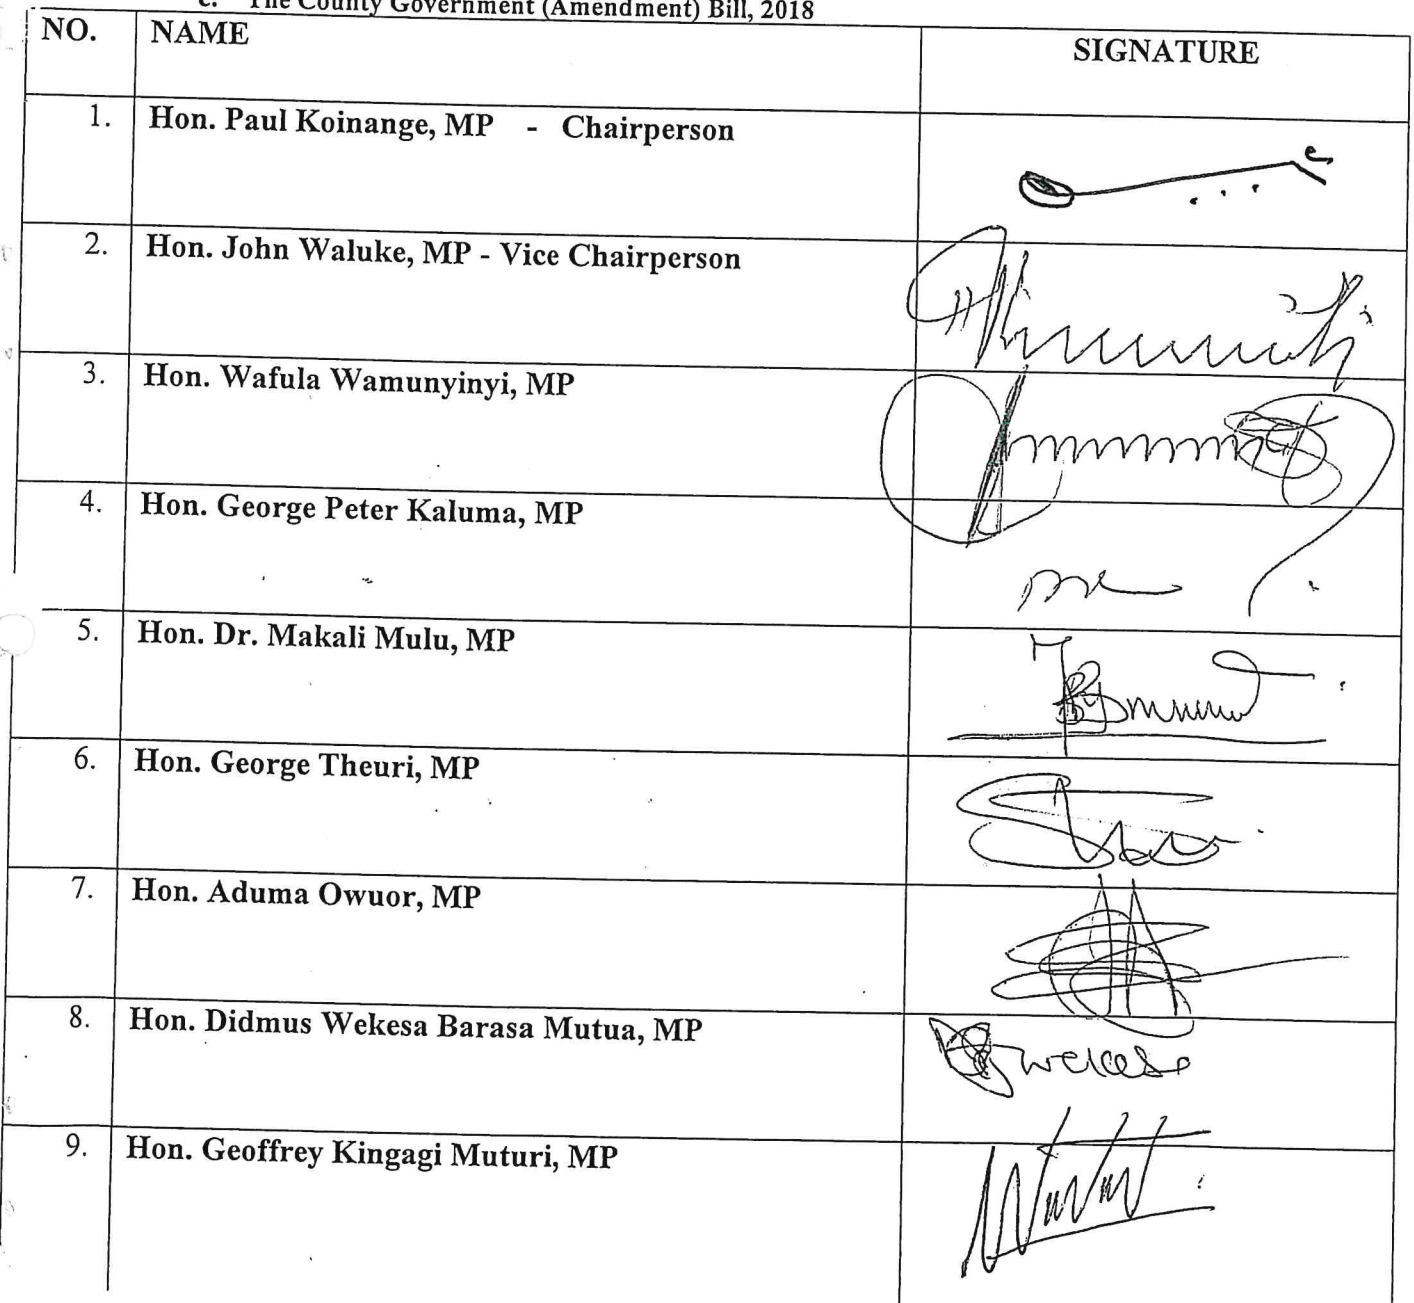 c. The County Government (Amendment) Bill, 2018
NO. NAME SIGNATURE
1. Hon. Paul Koinange, MP - Chairperson
2. Hon. John Waluke, MP - Vice Chairperson
3. Hon. Wafula Wamunyinyi, MP
4. Hon. George Peter Kaluma, MP
5. Hon. Dr. Makali Mulu, MP
6. Hon. George Theuri, MP
7. Hon. Aduma Owuor, MP
8. Hon. Didmus Wekesa Barasa Mutua, MP
9. Hon. Geoffrey Kingagi Muturi, MP